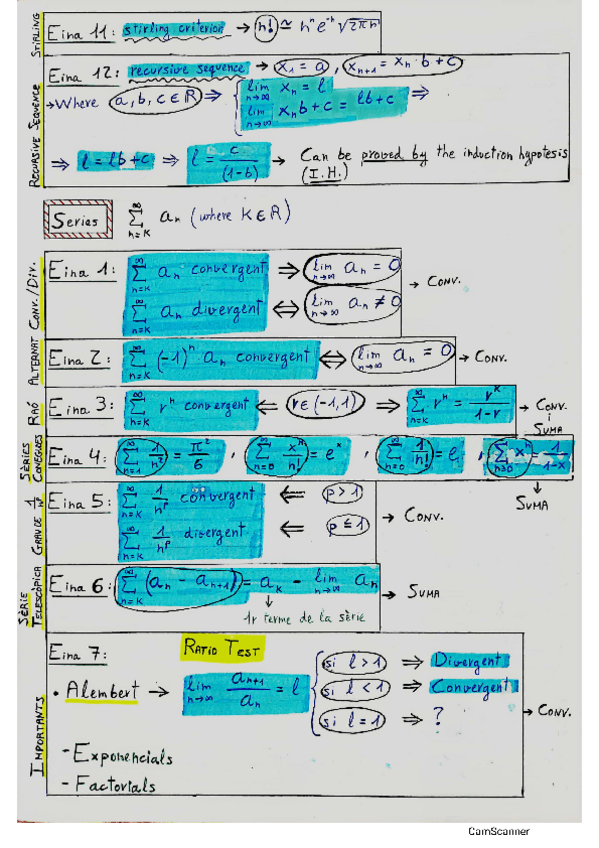 STIRLING
Eina 11: stirling criterion → n! ≃ nⁿ e⁻ⁿ √2πn
RECURSIVE SEQUENCE
Eina 12: recursive sequence → x₁ = a, xₙ₊₁ = xₙ · b + c
→ Where a, b, c ∈ ℝ ⇒ { lim n→∞ xₙ = l
lim n→∞ xₙb + c = lb + c ⇒
⇒ l = lb + c ⇒ l = c/(1-b) → Can be proved by the induction hypotesis
(I.H.)
Series ∑ n=K ∞ aₙ (where K ∈ ℝ)
CONV./DIV.
Eina 1: ∑ n=K ∞ aₙ convergent ⇒ lim n→∞ aₙ = 0
∑ n=K ∞ aₙ divergent ⇔ lim n→∞ aₙ ≠ 0 → CONV.
ALTERNAT
Eina 2: ∑ n=K ∞ (-1)ⁿ aₙ convergent ⇔ lim n→∞ aₙ = 0 → CONV.
RAÓ
Eina 3: ∑ n=K ∞ rⁿ convergent ⇐ r ∈ (-1,1) ⇒ ∑ n=K ∞ rⁿ = rᴷ/1-r → CONV.
i
SUMA
SÈRIES CONEGUES
Eina 4: ∑ n=1 ∞ 1/n² = π²/6, ∑ n=0 ∞ xⁿ/n! = eˣ, ∑ n=0 ∞ 1/n! = e, ∑ n≥0 xⁿ = 1/1-x
↓
SUMA
GRAUDE 1 nᵖ
Eina 5: ∑ n=K ∞ 1/nᵖ convergent ⇐ p > 1
∑ n=K ∞ 1/nᵖ divergent ⇐ p ≤ 1 → CONV.
SÈRIE TELESCÒPICA
Eina 6: ∑ n=K ∞ (aₙ - aₙ₊₁) = aₖ - lim n→∞ aₙ → SUMA
↓
1r terme de la sèrie
IMPORTANTS
Eina 7: RATIO TEST
• Alembert → lim n→∞ aₙ₊₁/aₙ = l { si l > 1 ⇒ Divergent
si l < 1 ⇒ Convergent
si l = 1 ⇒ ?
→ CONV.
- Exponencials
- Factorials
CamScanner